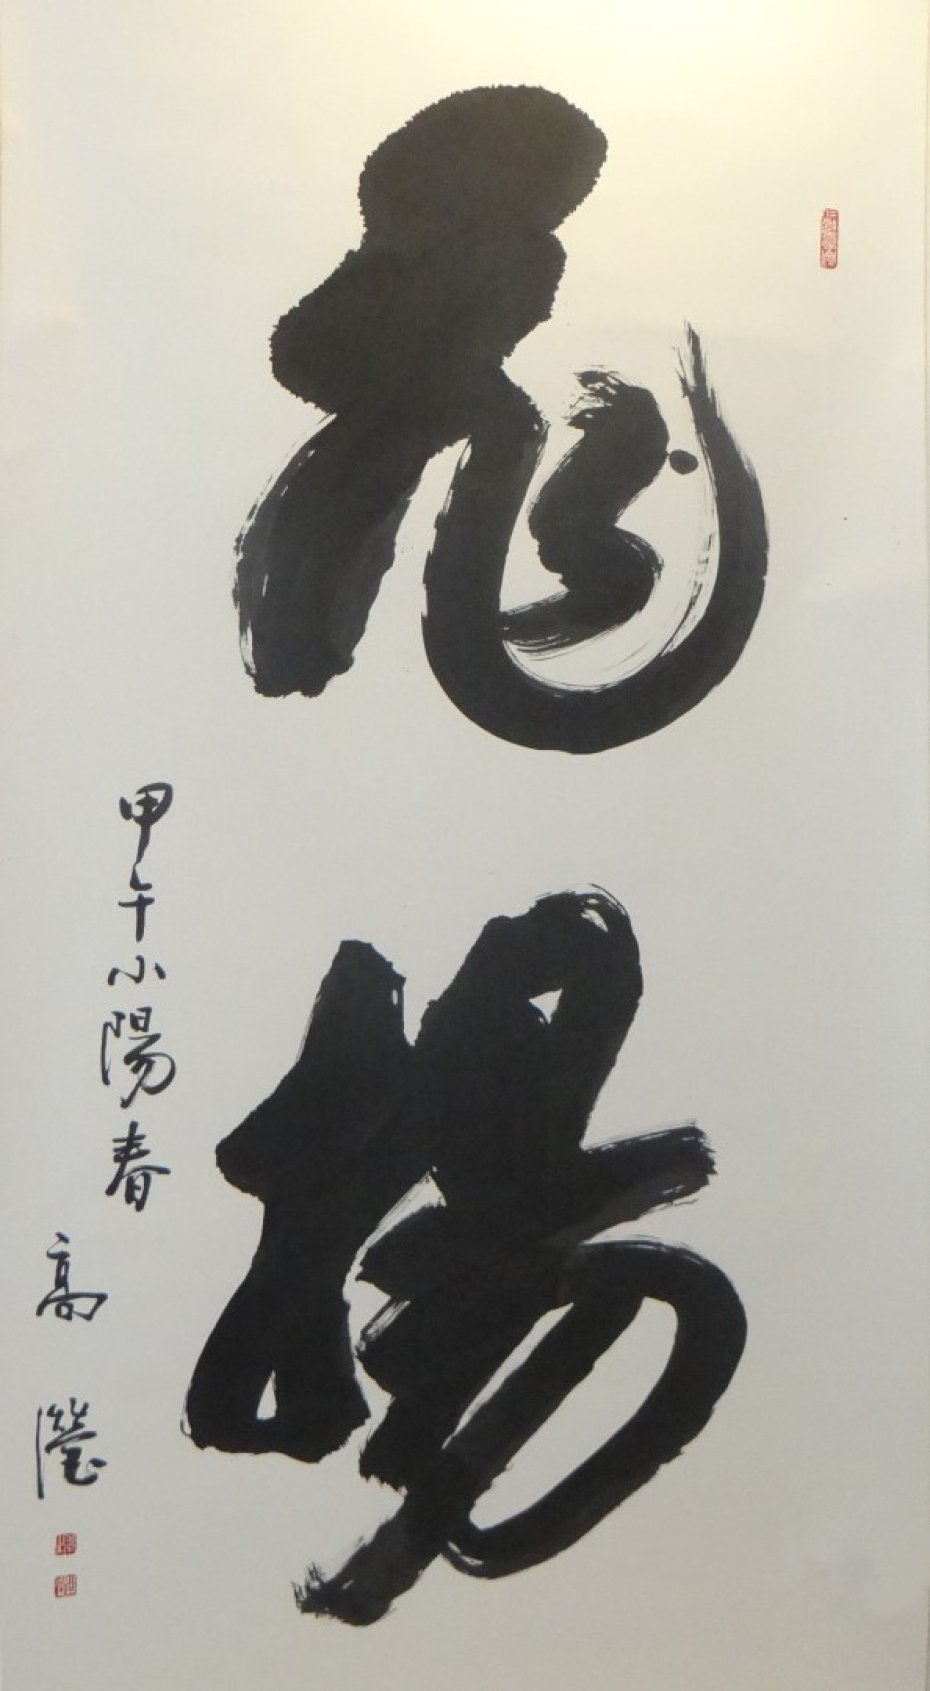 飛揚
甲午小陽春
高瀅